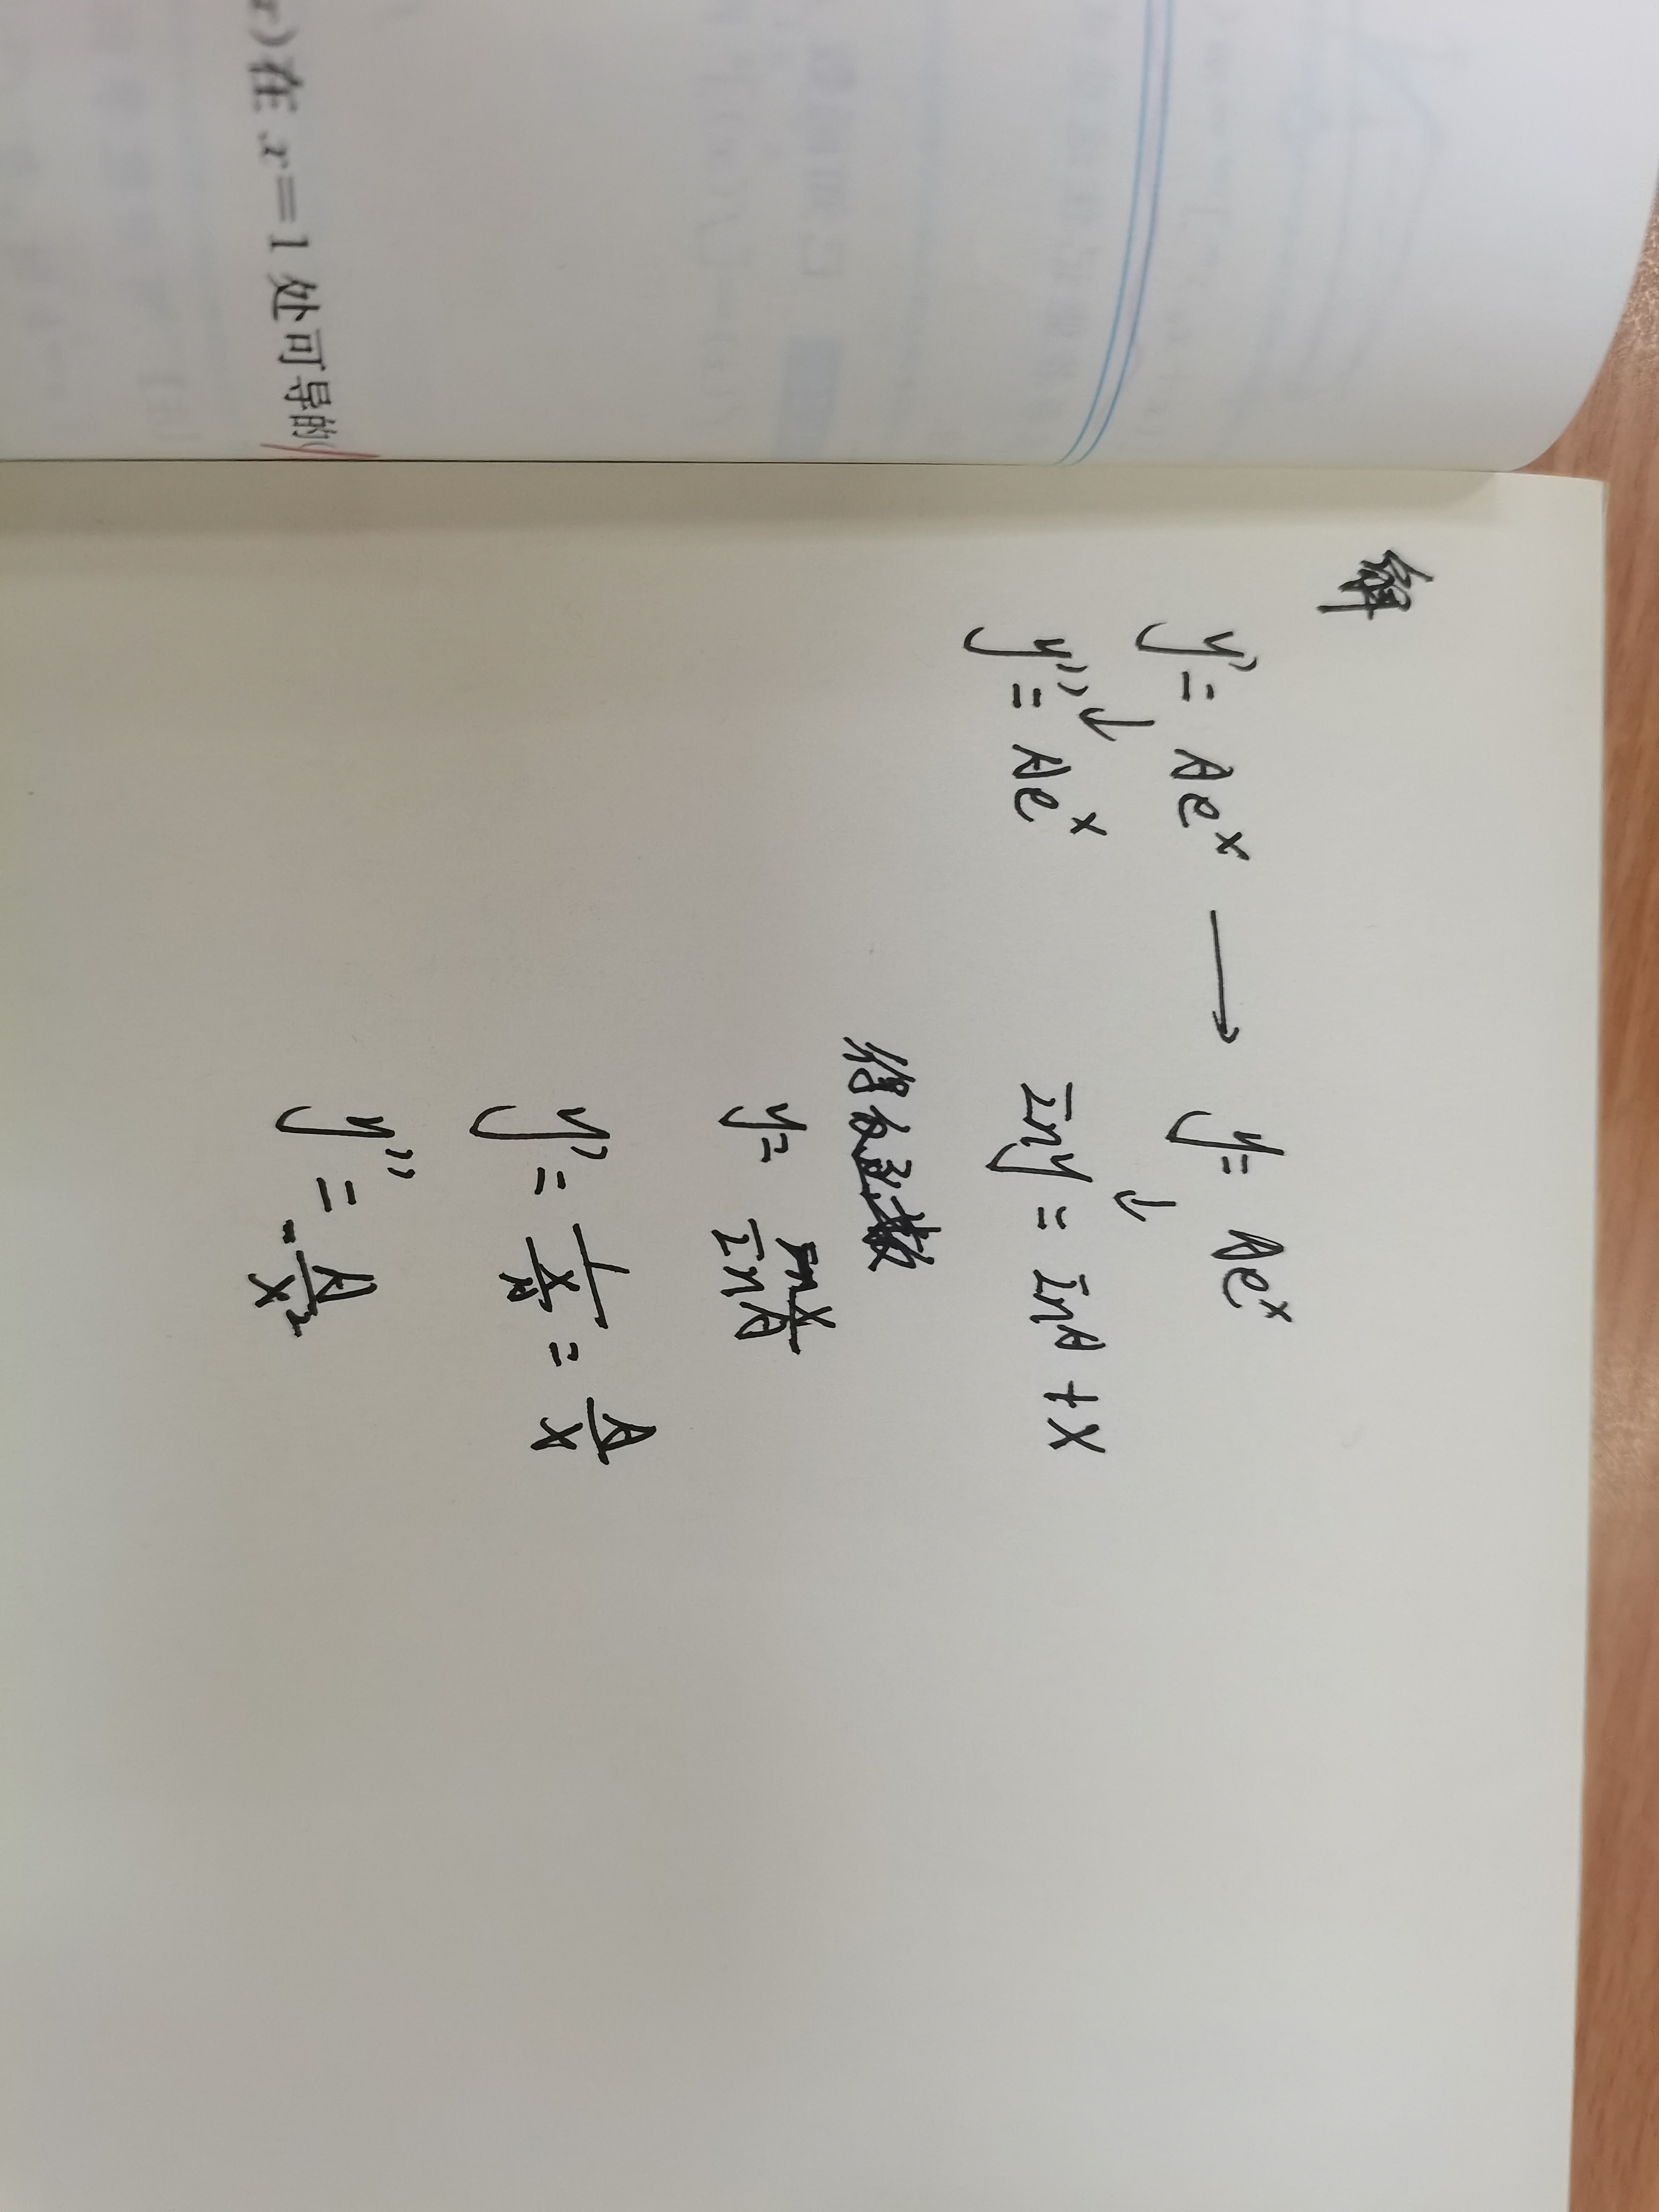 x)在 x=1 处可导的
解
y'= Ae^x → y= Ae^x
↓ ↓
y''= Ae^x lny = lnA + x
得反函数
y=
y' = = A/x
y'' = -A/x²